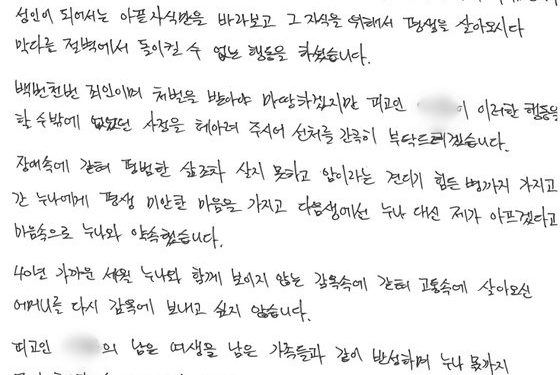 성인이 되어서는 아픈자식만을 바라보고 그 자식을 위해서 평생을 살아오시다
막다른 절벽에서 돌이킬 수 없는 행동을 하셨습니다.
백번천번 죄인이며 처벌을 받아야 마땅하겠지만 피고인 이 이러한 행동을
할 수밖에 없었던 사정을 헤아려 주시어 선처를 간곡히 부탁드리겠습니다.
장애속에 갇혀 평범한 삶조차 살지 못하고 암이라는 견디기 힘든 병까지 가지고
간 누나에게 평생 미안한 마음을 가지고 다음생에선 누나 대신 제가 아프겠다고
마음속으로 누나와 약속했습니다.
40년 가까운 세월 누나와 함께 보이지 않는 감옥속에 갇혀 고통속에 살아오신
어머니를 다시 감옥에 보내고 싶지 않습니다.
피고인 의 남은 여생을 남은 가족들과 같이 반성하며 누나 몫까지